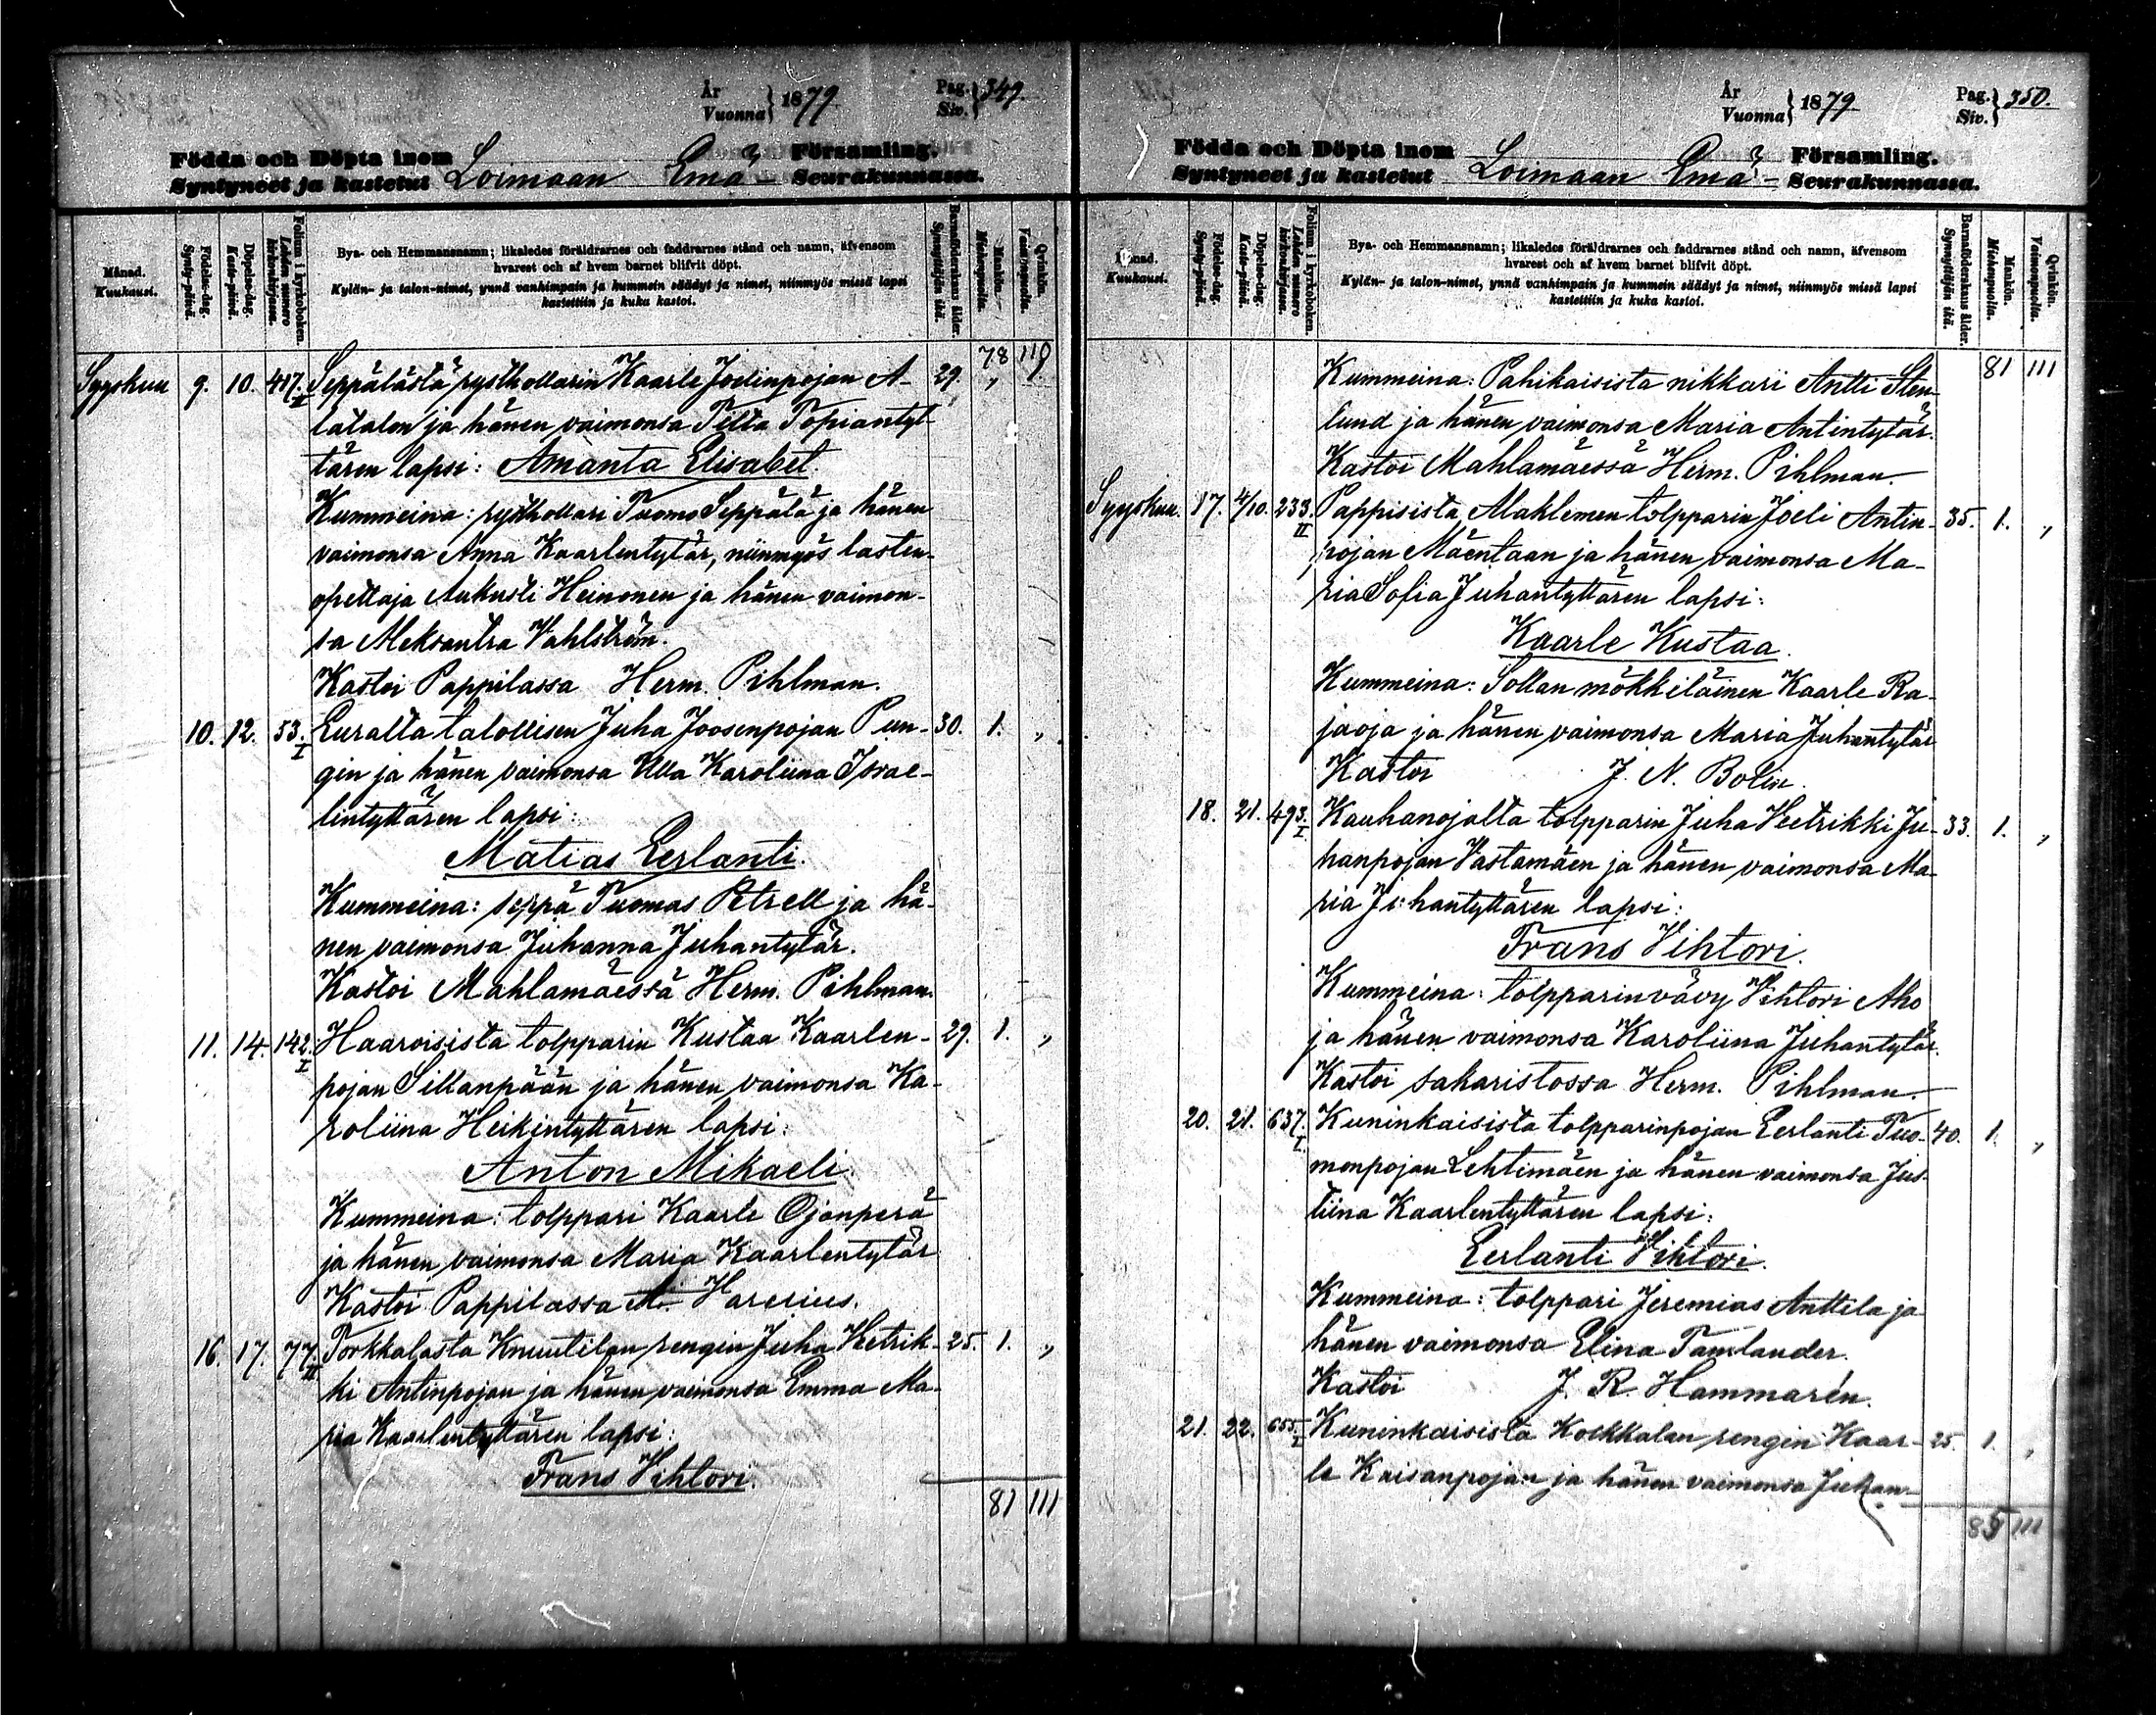 År
Vuonna } 1879
Pag.
Siv. } 349.
Födda och Döpta inom
Syntyneet ja kastetut
Loimaan Emä-
Församling.
Seurakunnassa.
Månad.
Kuukausi.
Födelse-dag.
Synty-päivä.
Döpelse-dag.
Kaste-päivä.
Folium i kyrkoboken.
Lehden numero kirkonkirjassa.
Bya- och Hemmansnamn; likaledes föräldrarnes och faddrarnes stånd och namn, äfvensom
hvarest och af hvem barnet blifvit döpt.
Kylän- ja talon-nimet, ynnä vanhimpain ja kummein säädyt ja nimet, niinmyös missä lapsi
kastettiin ja kuka kastoi.
Barnaföderskans ålder.
Synnyttäjän ikä.
Mankön.
Miehenpuolia.
Qvinkön.
Vaimonpuolia.
78 110
Syyskuu 9. 10. 417. I Seppälästä rysthollarin Kaarle Joelinpojan A- 29. „ 1.
latalon ja hänen vaimonsa Tilta Topiantyt-
tären lapsi: Amanta Elisabet.
Kummeina: rysthollari Tuomo Seppälä ja hänen
vaimonsa Anna Kaarlentytär, niinmyös lasten-
opettaja Aukusti Heinonen ja hänen vaimon-
sa Aleksantra Vahlström.
Kastoi Pappilassa Herm. Pihlman.
10. 12. 53. I Euralta talollisen Juha Joosenpojan Pun- 30. 1. „
gin ja hänen vaimonsa Ulla Karoliina Israe-
lintyttären lapsi:
Matias Eerlanti.
Kummeina: seppä Tuomas Petrell ja hä-
nen vaimonsa Juhanna Juhantytär.
Kastoi Mahlamäessä Herm. Pihlman.
11. 14. 142. I Haaroisista tolpparin Kustaa Kaarlen- 29. 1. „
pojan Sillanpään ja hänen vaimonsa Ka-
roliina Heikintyttären lapsi:
Anton Mikaeli.
Kummeina: tolppari Kaarle Ojanperä
ja hänen vaimonsa Maria Kaarlentytär
Kastoi Pappilassa
16. 17. 77. II Torkkalasta Knuutilan rengin Juha Vetrik- 25. 1. „
ki Antinpojan ja hänen vaimonsa Emma Ma-
ria Kaarlentyttären lapsi:
Frans Vihtori.
81 111
År
Vuonna } 1879
Pag.
Siv. } 350.
Födda och Döpta inom
Syntyneet ja kastetut
Loimaan Emä-
Församling.
Seurakunnassa.
Månad.
Kuukausi.
Födelse-dag.
Synty-päivä.
Döpelse-dag.
Kaste-päivä.
Folium i kyrkoboken.
Lehden numero kirkonkirjassa.
Bya- och Hemmansnamn; likaledes föräldrarnes och faddrarnes stånd och namn, äfvensom
hvarest och af hvem barnet blifvit döpt.
Kylän- ja talon-nimet, ynnä vanhimpain ja kummein säädyt ja nimet, niinmyös missä lapsi
kastettiin ja kuka kastoi.
Barnaföderskans ålder.
Synnyttäjän ikä.
Mankön.
Miehenpuolia.
Qvinkön.
Vaimonpuolia.
81 111
Kummeina: Pahikaisista nikkari Antti Sten-
lund ja hänen vaimonsa Maria Antintytär.
Kastoi Mahlamäessä Herm. Pihlman.
Syyskuu. 17. 4/10. 233. II Pappisista Mahlemen tolpparin Joeli Antin- 35. 1. „
pojan Mäentaan ja hänen vaimonsa Ma-
ria Sofia Juhantyttären lapsi:
Kaarle Kustaa.
Kummeina: Sollan mökkiläinen Kaarle Ra-
jaoja ja hänen vaimonsa Maria Juhantytär
Kastoi J. N. Bolin.
18. 21. 493. I Kauhanojalta tolpparin Juha Vetrikki Ju- 33. 1. „
hanpojan Vastamäen ja hänen vaimonsa Ma-
ria Juhantyttären lapsi:
Frans Vihtori.
Kummeina: tolpparinvävy Vihtori Aho
ja hänen vaimonsa Karoliina Juhantytär.
Kastoi sakaristossa Herm. Pihlman.
20. 21. 637. I Kuninkaisista tolpparinpojan Eerlanti Tuo- 40. 1. „
monpojan Lehtimäen ja hänen vaimonsa Jus-
tiina Kaarlentyttären lapsi:
Eerlanti Vihtori.
Kummeina: tolppari Jeremias Anttila ja
hänen vaimonsa Elina Tamlander.
Kastoi J. R. Hammarén.
21. 22. 655. I Kuninkaisista Kokkalan rengin Kaar- 25. 1. „
le Kaisanpojan ja hänen vaimonsa Juhan-
85 111